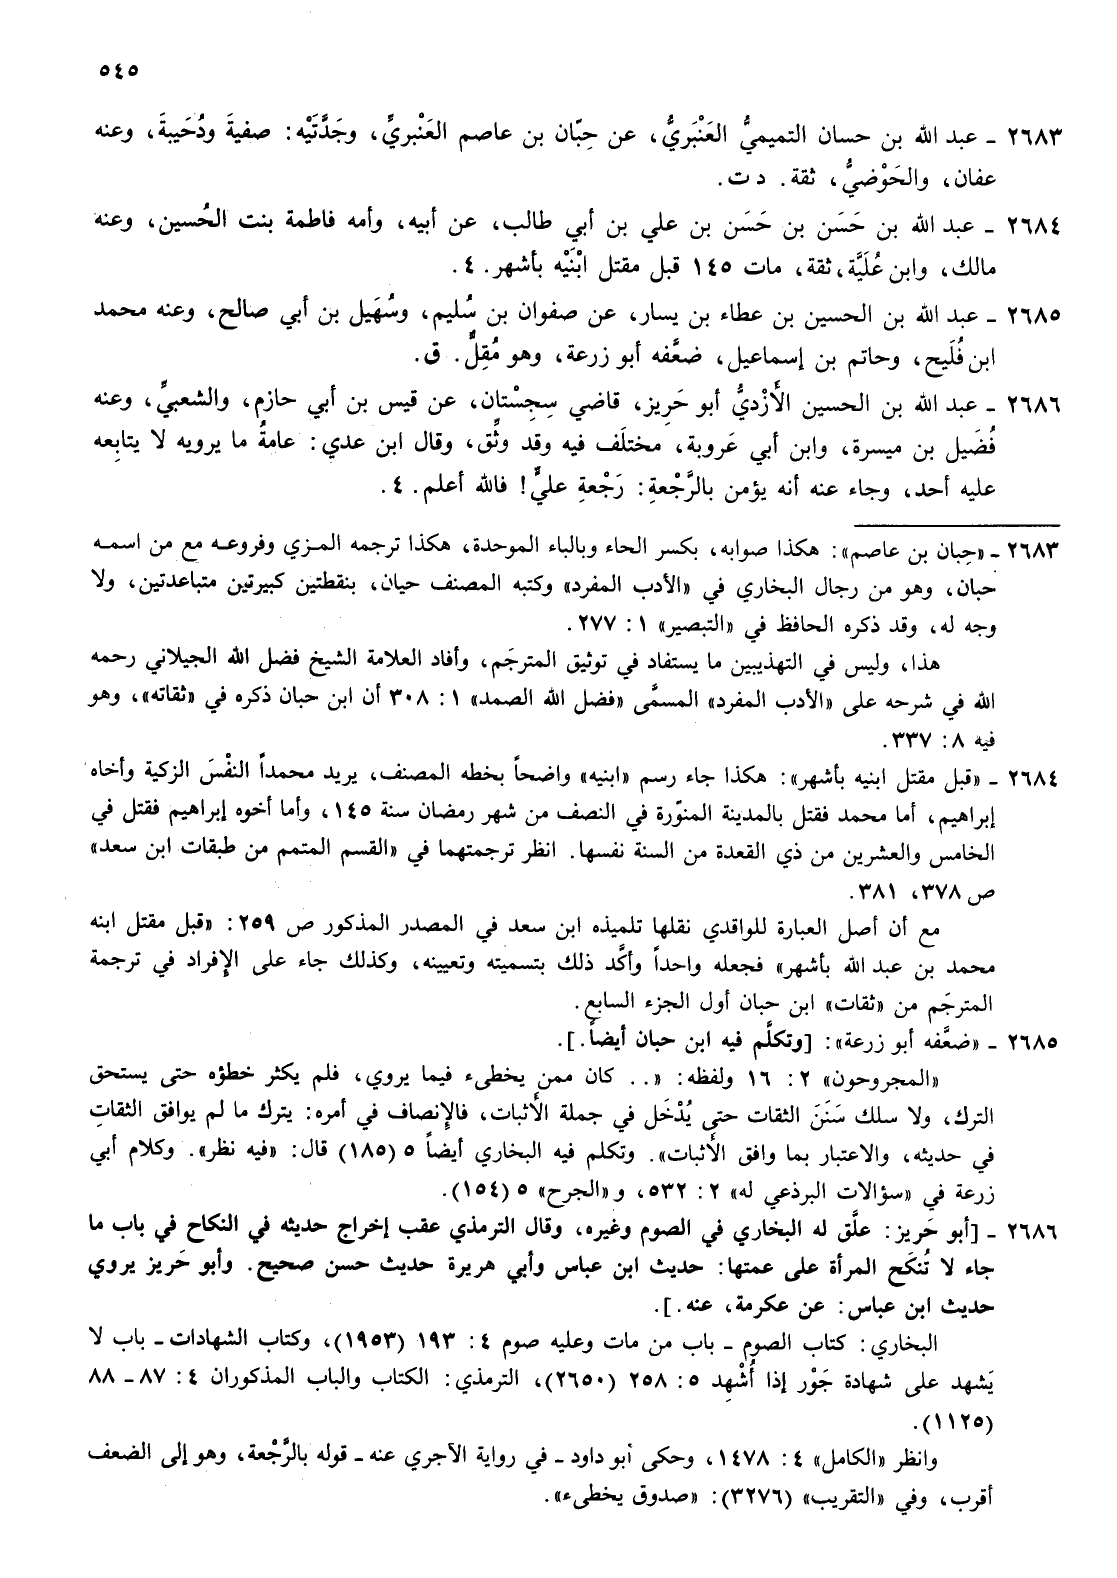 ٥٤٥
٢٦٨٣ ـ عبد الله بن حسان التميميُّ العَنْبَريُّ، عن حِبّان بن عاصم العَنْبريِّ، وجَدَّتَيْه: صفيةَ ودُحَيبةَ، وعنه
عفان، والحَوْضيُّ، ثقة. د ت.
٢٦٨٤ ـ عبد الله بن حَسَن بن حَسَن بن علي بن أبي طالب، عن أبيه، وأمه فاطمة بنت الحُسين، وعنه
مالك، وابن عُلَيَّة، ثقة، مات ١٤٥ قبل مقتل ابْنَيْه بأشهر. ٤.
٢٦٨٥ ـ عبد الله بن الحسين بن عطاء بن يسار، عن صفوان بن سُليم، وسُهَيل بن أبي صالح، وعنه محمد
ابن فُلَيح، وحاتم بن إسماعيل، ضعَّفه أبو زرعة، وهو مُقِلٌّ. ق.
٢٦٨٦ ـ عبد الله بن الحسين الأَزْديُّ أبو حَرِيز، قاضي سِجِسْتان، عن قيس بن أبي حازم، والشعبيِّ، وعنه
فُضَيل بن ميسرة، وابن أبي عَروبة، مختلَف فيه وقد وثِّق، وقال ابن عدي: عامةُ ما يرويه لا يتابِعه
عليه أحد، وجاء عنه أنه يؤمن بالرَّجْعةِ: رَجْعةِ عليٍّ! فالله أعلم. ٤.
٢٦٨٣ ـ «حِبان بن عاصم»: هكذا صوابه، بكسر الحاء وبالباء الموحدة، هكذا ترجمه المزي وفروعه مع من اسمه
حبان، وهو من رجال البخاري في «الأدب المفرد» وكتبه المصنف حيان، بنقطتين كبيرتين متباعدتين، ولا
وجه له، وقد ذكره الحافظ في «التبصير» ١: ٢٧٧.
هذا، وليس في التهذيبين ما يستفاد في توثيق المترجَم، وأفاد العلامة الشيخ فضل الله الجيلاني رحمه
الله في شرحه على «الأدب المفرد» المسمَّى «فضل الله الصمد» ١: ٣٠٨ أن ابن حبان ذكره في «ثقاته»، وهو
فيه ٨: ٣٣٧.
٢٦٨٤ ـ «قبل مقتل ابنيه بأشهر»: هكذا جاء رسم «ابنيه» واضحاً بخطه المصنف، يريد محمداً النفْسَ الزكية وأخاه
إبراهيم، أما محمد فقتل بالمدينة المنوّرة في النصف من شهر رمضان سنة ١٤٥، وأما أخوه إبراهيم فقتل في
الخامس والعشرين من ذي القعدة من السنة نفسها. انظر ترجمتهما في «القسم المتمم من طبقات ابن سعد»
ص ٣٧٨، ٣٨١.
مع أن أصل العبارة للواقدي نقلها تلميذه ابن سعد في المصدر المذكور ص ٢٥٩: «قبل مقتل ابنه
محمد بن عبد الله بأشهر» فجعله واحداً وأكَّد ذلك بتسميته وتعيينه، وكذلك جاء على الإفراد في ترجمة
المترجَم من «ثقات» ابن حبان أول الجزء السابع.
٢٦٨٥ ـ «ضعَّفه أبو زرعة»: [وتكلَّم فيه ابن حبان أيضاً.].
«المجروحون» ٢: ١٦ ولفظه: «.. كان ممن يخطىء فيما يروي، فلم يكثر خطؤه حتى يستحق
الترك، ولا سلك سَنَنَ الثقات حتى يُدْخَل في جملة الأثبات، فالإنصاف في أمره: يترك ما لم يوافق الثقاتِ
في حديثه، والاعتبار بما وافق الأثبات». وتكلم فيه البخاري أيضاً ٥ (١٨٥) قال: «فيه نظر». وكلام أبي
زرعة في «سؤالات البرذعي له» ٢: ٥٣٢، و«الجرح» ٥ (١٥٤).
٢٦٨٦ ـ [أبو حَريز: علَّق له البخاري في الصوم وغيره، وقال الترمذي عقب إخراج حديثه في النكاح في باب ما
جاء لا تُنكَح المرأة على عمتها: حديث ابن عباس وأبي هريرة حديث حسن صحيح. وأبو حَريز يروي
حديث ابن عباس: عن عكرمة، عنه.].
البخاري: كتاب الصوم ـ باب من مات وعليه صوم ٤: ١٩٣ (١٩٥٣)، وكتاب الشهادات ـ باب لا
يَشهد على شهادة جَوْر إذا أُشْهِد ٥: ٢٥٨ (٢٦٥٠)، الترمذي: الكتاب والباب المذكوران ٤: ٨٧ ـ ٨٨
(١١٢٥).
وانظر «الكامل» ٤: ١٤٧٨، وحكى أبو داود ـ في رواية الآجري عنه ـ قوله بالرَّجْعة، وهو إلى الضعف
أقرب، وفي «التقريب» (٣٢٧٦): «صدوق يخطىء».